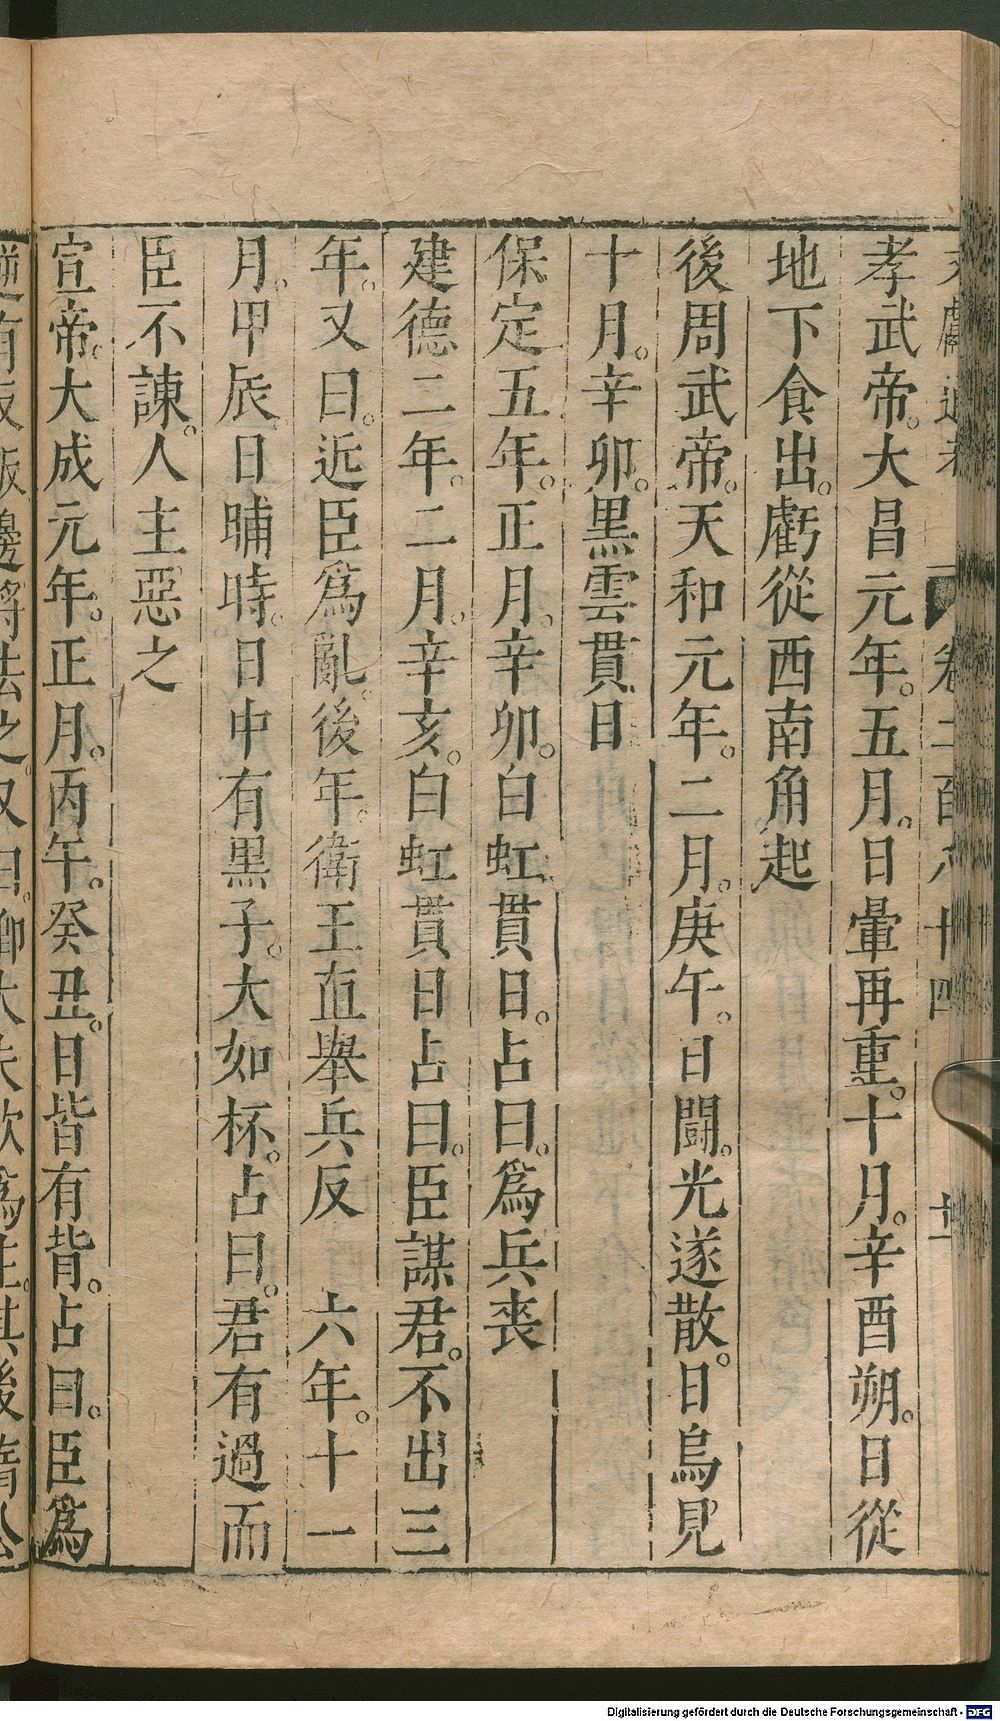 卷二百八十四
孝武帝。大昌元年。五月。日暈再重。十月。辛酉朔。日從
地下食出。虧從西南角起
後周武帝。天和元年。二月。庚午。日鬪。光遂散。日烏見
十月。辛卯。黑雲貫日
保定五年。正月。辛卯。白虹貫日。占曰。爲兵喪
建德二年。二月。辛亥。白虹貫日占曰。臣謀君。不出三
年。又曰。近臣爲亂。後年。衛王直舉兵反　六年。十一
月。甲辰。日晡時。日中有黑子。大如杯。占曰。君有過而
臣不諫。人主惡之
宣帝。大成元年。正月。丙午。癸丑。日皆有背。占曰。臣爲
邊將去之。又曰。卿大夫欲爲主。其後隋公
Digitalisierung gefördert durch die Deutsche Forschungsgemeinschaft - DFG